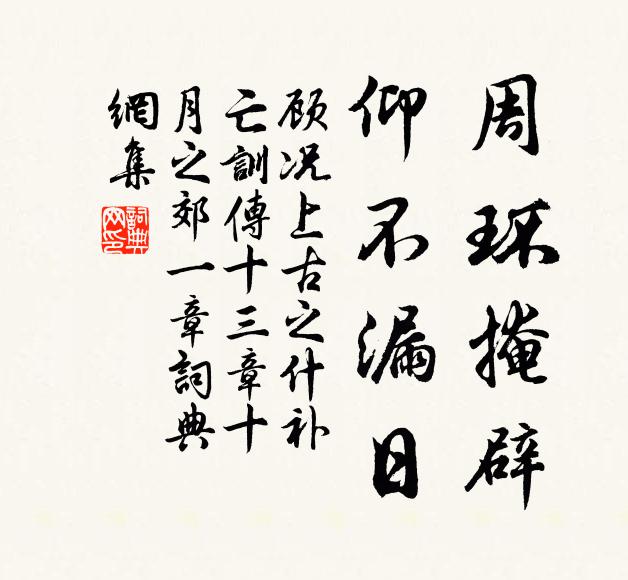 周环掩辟
仰不漏日
顾况上古之什补
亡訓傳十三章十
月之郊一章詞典
網集
詞典网印